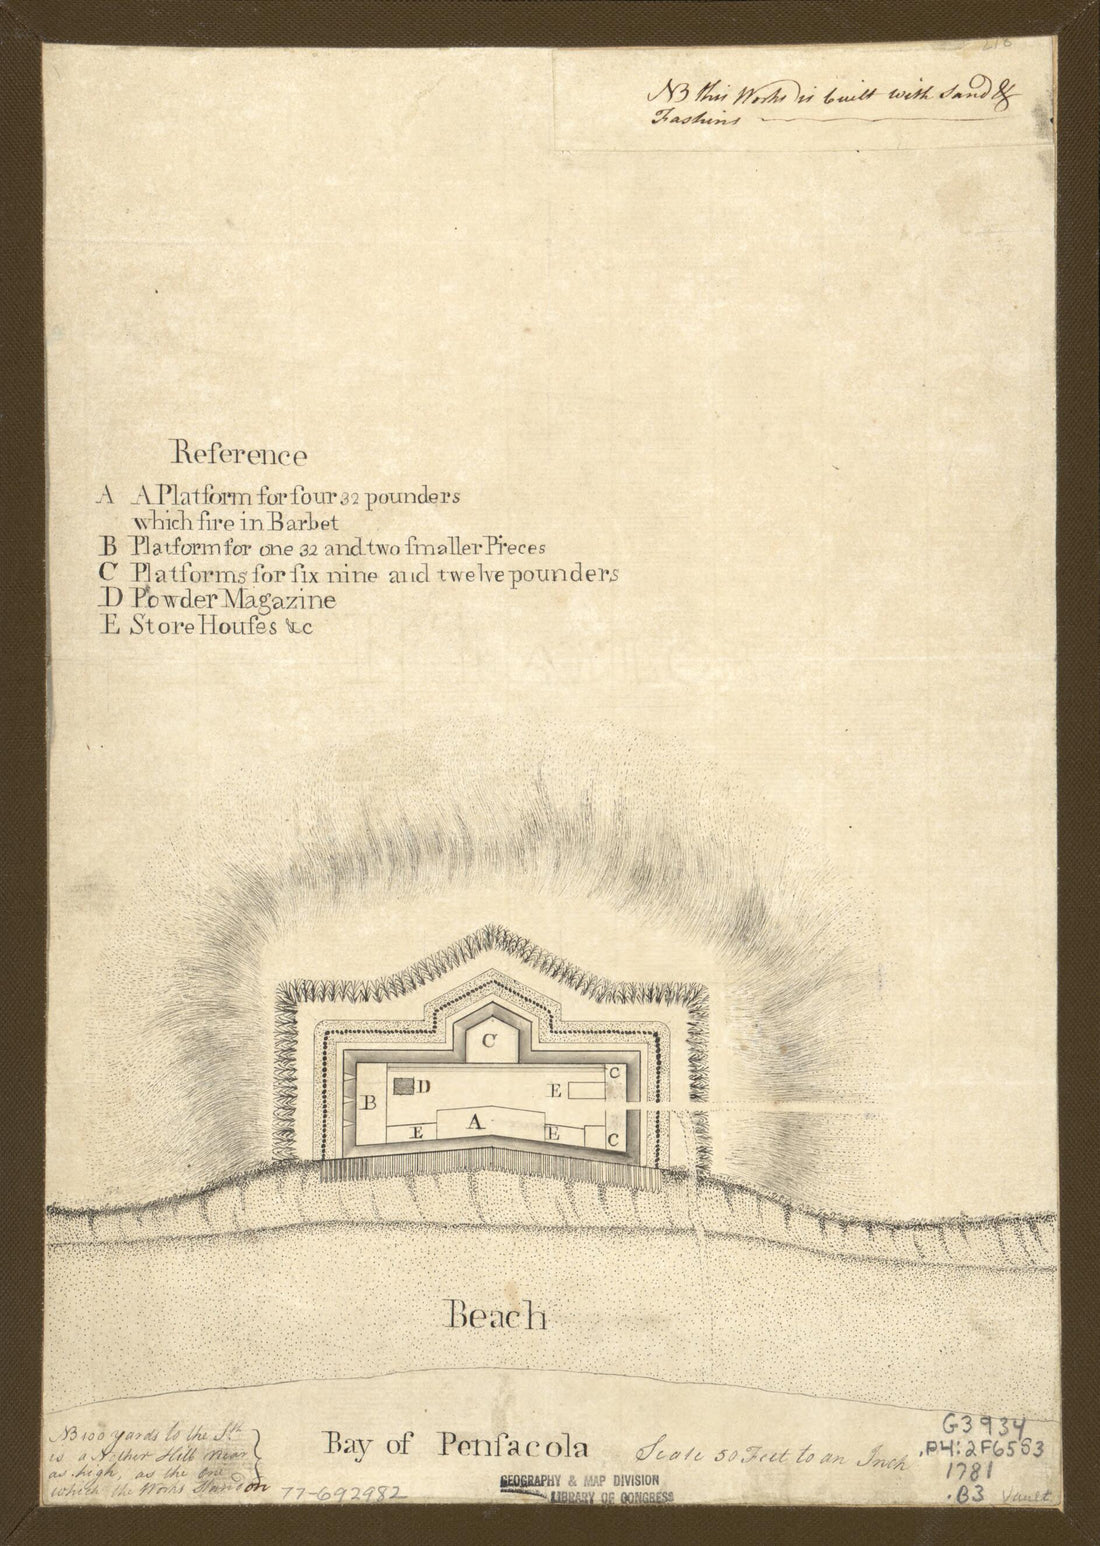 NB this Works is built with Sand &
Fashins
Reference
A A Platform for four 32 pounders
which fire in Barbet
B Platform for one 32 and two ſmaller Pieces
C Platforms for ſix nine and twelve pounders
D Powder Magazine
E Store Houſes &c
C
C
D
E
B
A
E
E
C
Beach
NB 100 yards to the Sth
is a Nother Hill near
as high, as the one
which the Works Stand on
77-692982
Bay of Penſacola
Scale 50 Feet to an Inch
GEOGRAPHY & MAP DIVISION
LIBRARY OF CONGRESS
G3934
.P4:2F65S3
1781
.B3 Vault